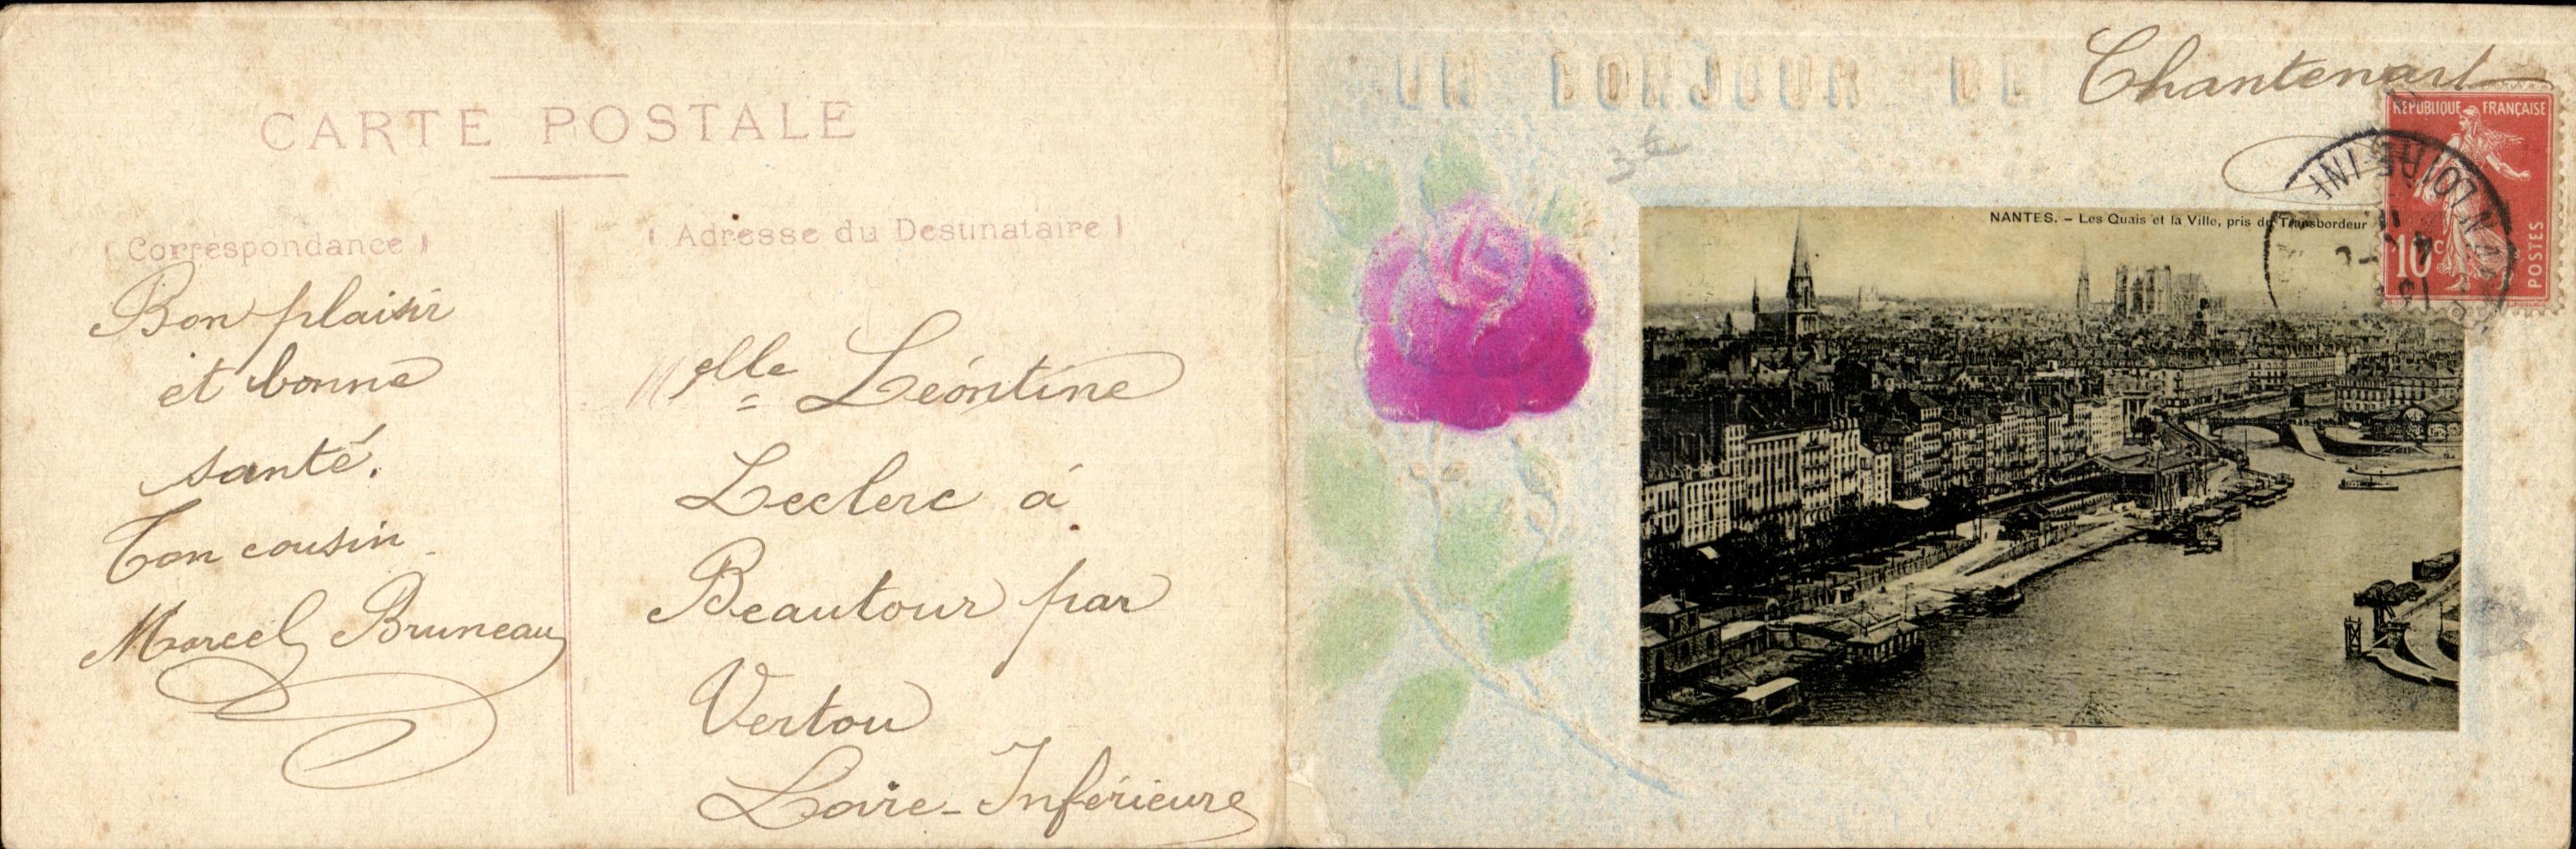 CARTE POSTALE
Correspondance
Bon plaisir
et bonne
santé.
Ton cousin
Marcel Bruneau
Adresse du Destinataire
Melle Léontine
Leclerc à
Beautour par
Vertou
Loire-Inférieure
UN BONJOUR DE Chantenay
3 €
REPUBLIQUE FRANÇAISE
10c
POSTES
LOIRE INF
NANTES. - Les Quais et la Ville, pris du Transbordeur